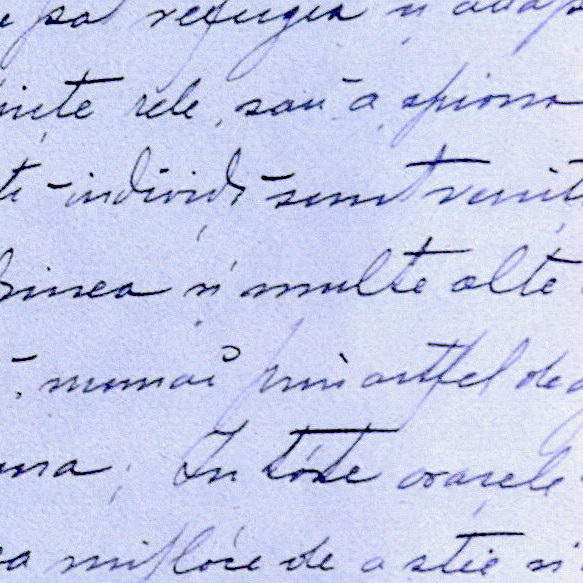 refugia si
rele, sau a spiona
indivizi sunt veniti
si multe alte
numai prin astfel de
In tóte orasele
mijlóce de a stie si